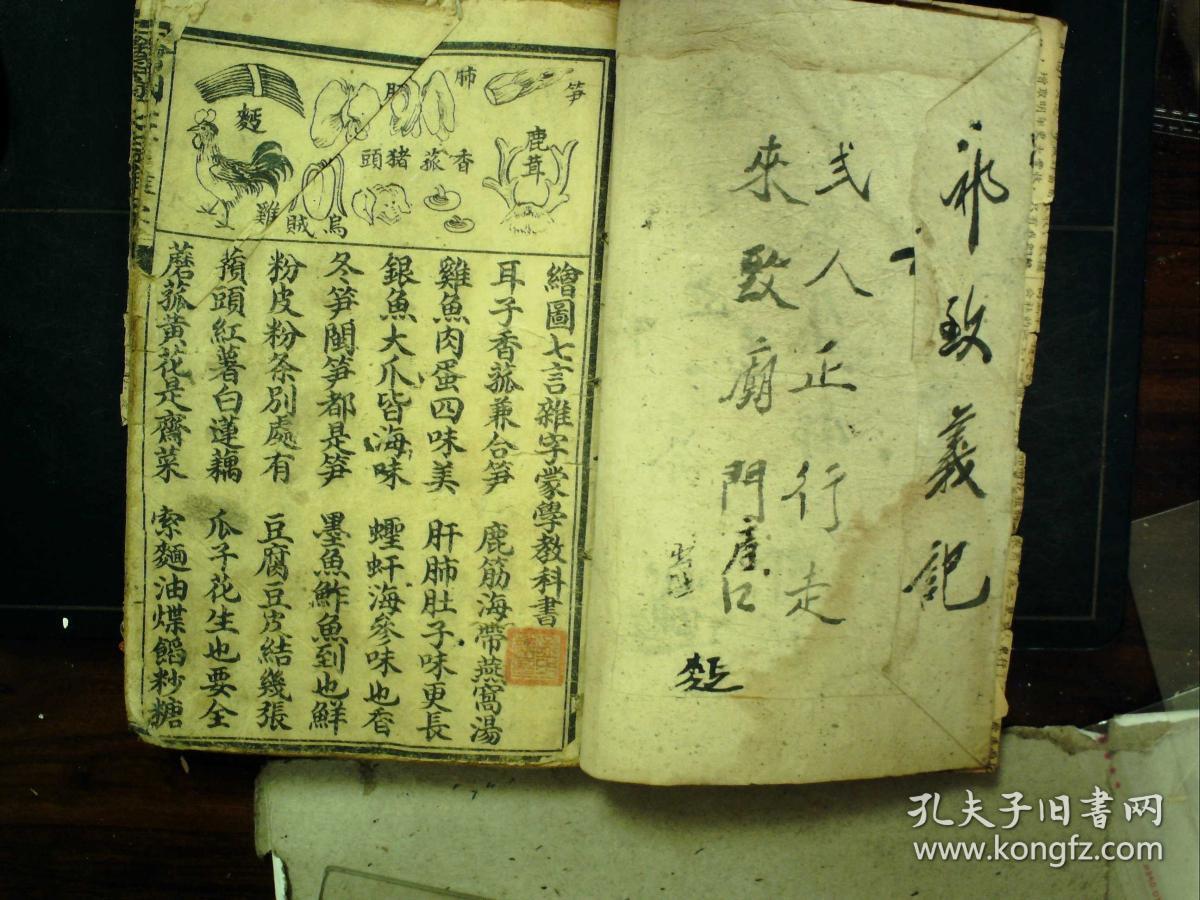 記義致
弍人正行走
來致廟門
麪
肺
肝
笋
麪
鹿茸
香菰
猪頭
烏賊
雞
繪圖七言雜字蒙學教科書
耳子香菰兼合笋 鹿筋海帶燕窩湯
雞魚肉蛋四味美 肝肺肚子味更長
銀魚大爪皆海味 蟶蚶海參味也香
冬笋閩笋都是笋 墨魚鮓魚到也鮮
粉皮粉条別處有 豆腐豆皮結幾張
蕷頭紅著白蓮藕 瓜子花生也要全
蘑菰黃花是齋菜 索麵油煠餡粆糖
孔夫子旧书网
www.kongfz.com